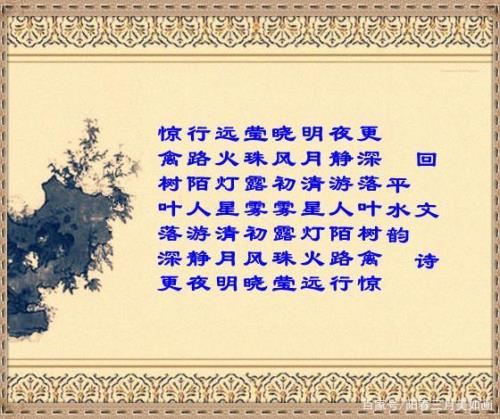 回文诗
平水韵
更深落叶树禽惊
夜静游人陌路行
明月清星灯火远
晓风初雾露珠莹
莹珠露雾初风晓
远火灯星清月明
行路陌人游静夜
惊禽树叶落深更
百家号/阳春三月美如画